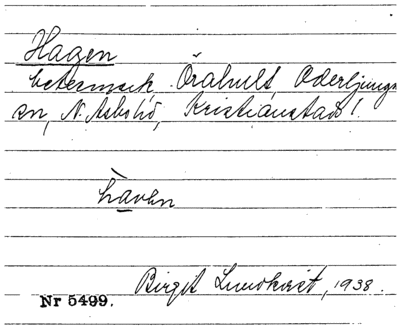 Hagen
betesmark Örahult Oderljunga
sn, N. Åsbo hd, Kristianstad l.
hàvan
Birgit Lundkvist, 1938.
Nr 5499.